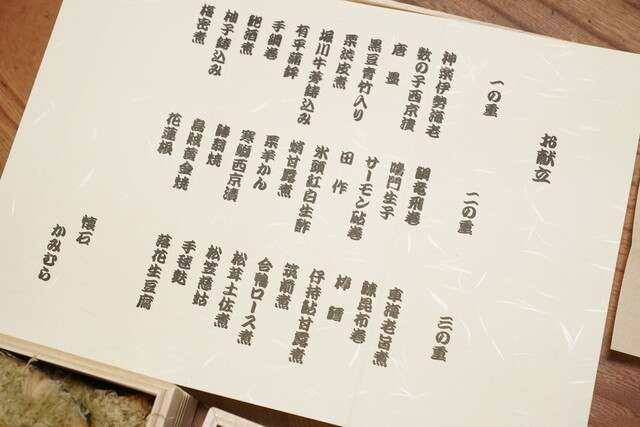 お献立
一の重
神楽伊勢海老
数の子西京漬
唐墨
黒豆青竹入り
栗渋皮煮
堀川牛蒡鋳込み
有平蒲鉾
手綱巻
鮑酒煮
柚子鋳込み
梅蜜煮
二の重
鯛竜飛巻
鳴門生子
サーモン砧巻
田作
氷頭紅白生酢
蛸甘露煮
栗羊かん
寒鰤西京漬
烏賊黄金焼
花蓮根
三の重
車海老旨煮
鰊昆布巻
棒鱈
仔持鮎甘露煮
筑前煮
合鴨ロース煮
松茸土佐煮
松笠慈姑
手毬麩
落花生豆腐
懐石
かみむら